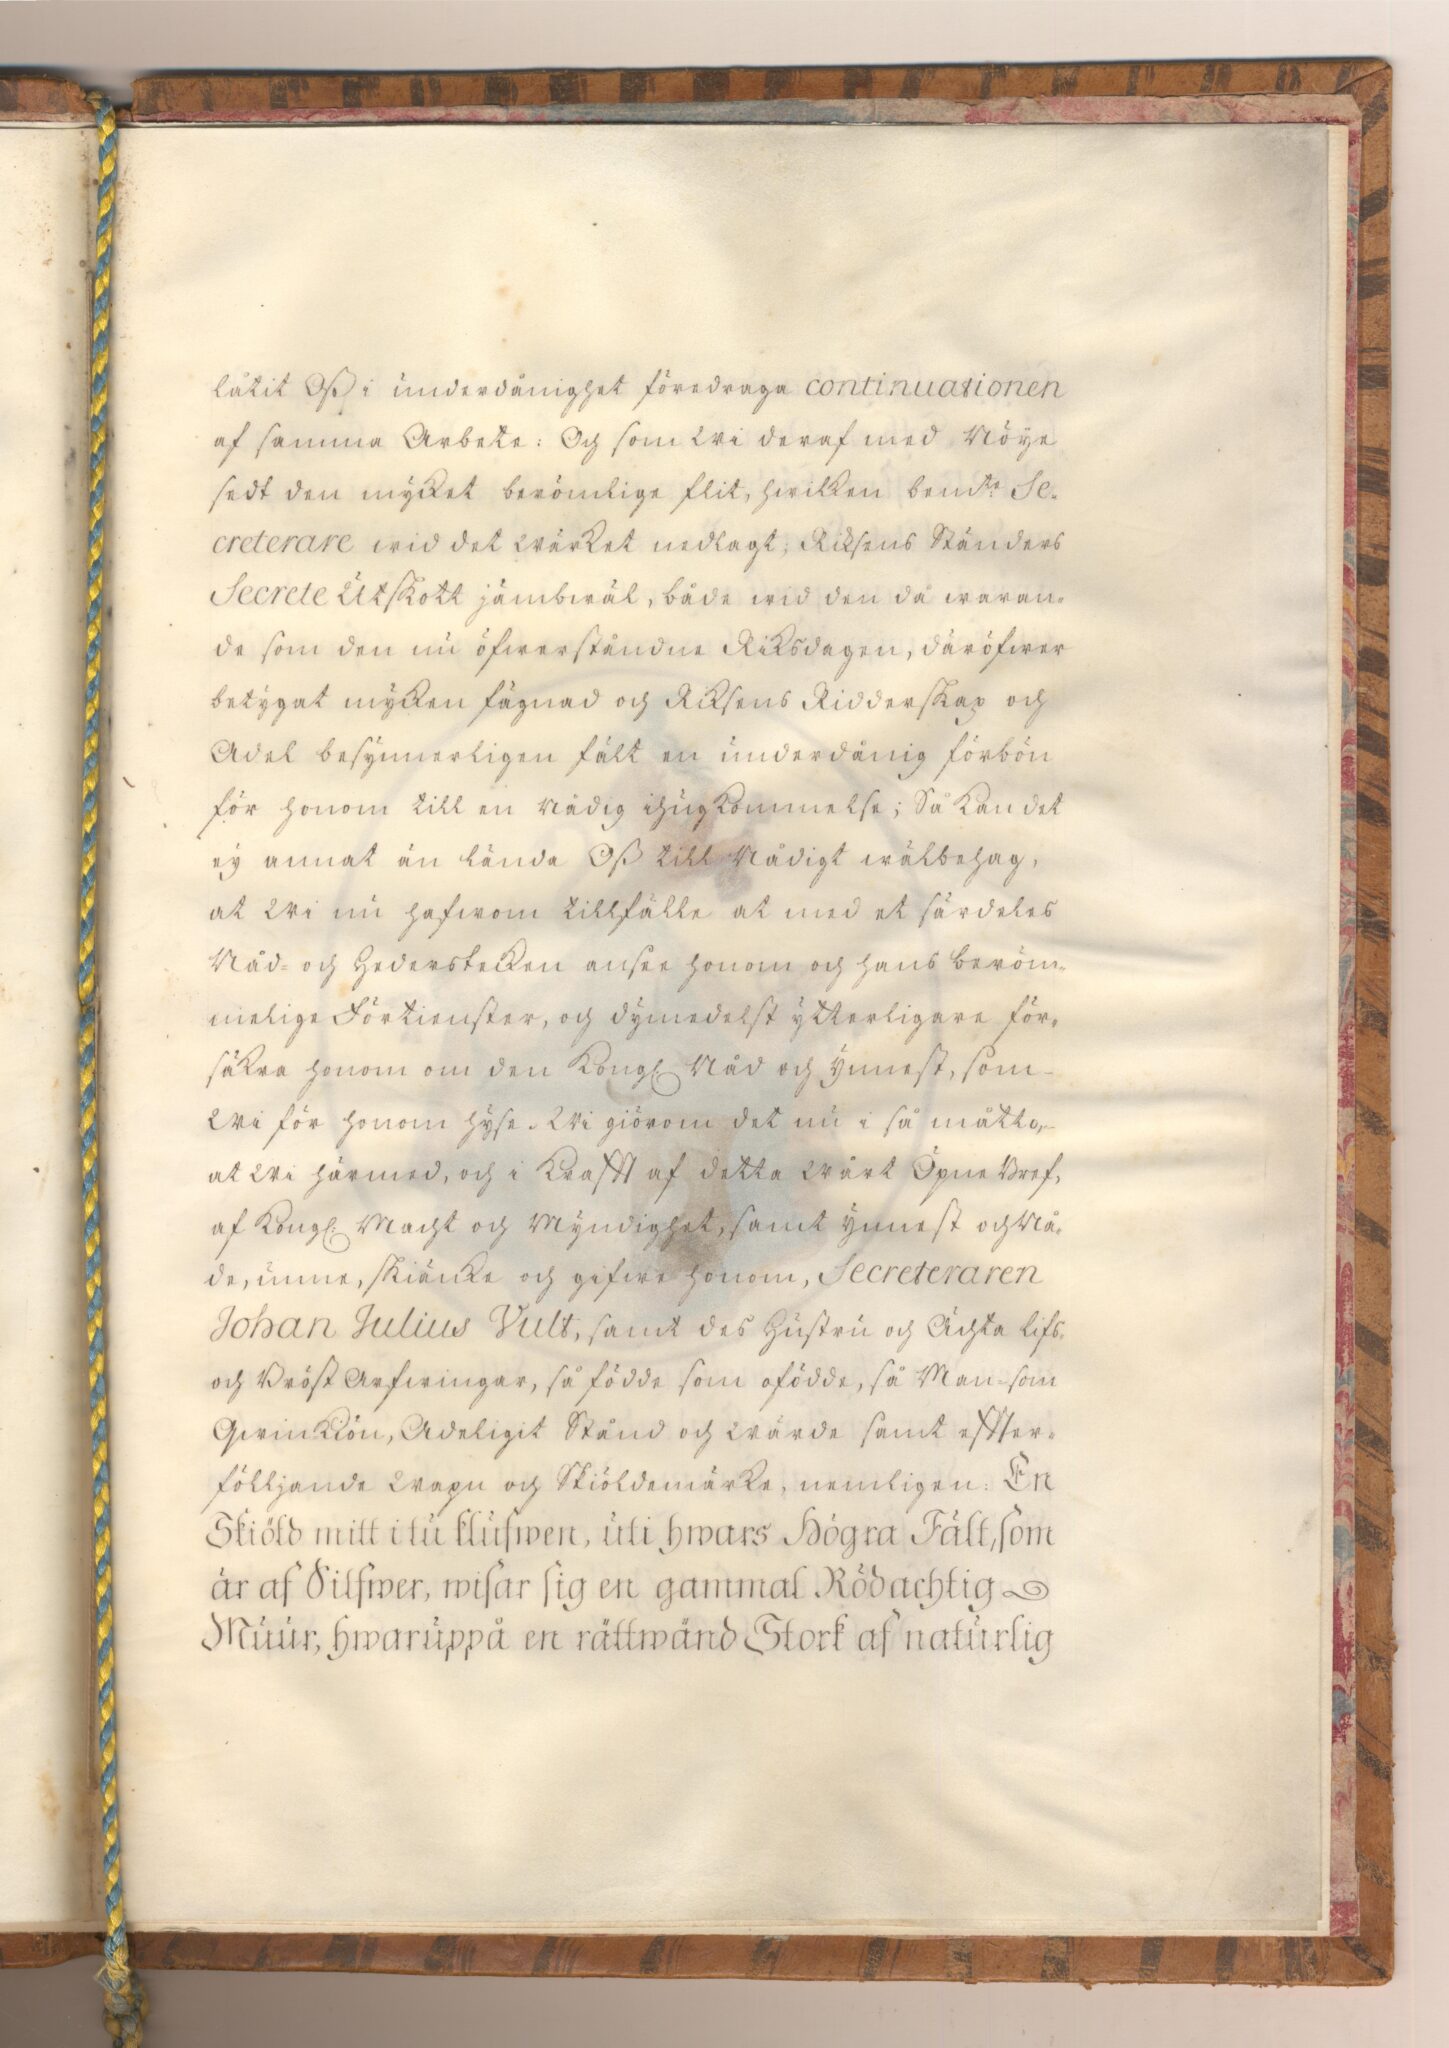 låtit Oß i underdånighet föredraga continuationen
af samma Arbete: Och som Wi deraf med Nöye
sedt den mycket berömlige flit, hwilken bemte Se-
creterare wid det Wärket nedlagt, Riksens Ständers
Secrete Utskott jämbwäl, både wid den då waran-
de som den nu öfwerståndne Riksdagen, däröfwer
betygat mycken fägnad och Riksens Ridderskap och
Adel besynnerligen fält en underdånig förbön
för honom till en Nådig ihugkommelse; Så kan det
ey annat än lända Oß till Nådigt wälbehag,
at Wi nu hafwom tillfälle at med et särdeles
Nåd- och Hederstecken ansee honom och hans beröm-
melige Förtienster, och dymedelst ytterligare för-
säkra honom om den Kongl. Nåd och Ynnest, som
Wi för honom hyse. Wi giörom det nu i så måtto,
at Wi härmed, och i Krafft af detta Wårt Öpne Bref,
af Kongl. Macht och Myndighet, samt Ynnest och Nå-
de, unne, skiänke och gifwe honom, Secreteraren
Johan Julius Vult, samt des Hustru och Ächta lifs-
och Bröst Arfwingar, så födde som ofödde, så Man- som
Qwinkiön, Adeligit Stånd och Wärde samt effter-
följjande Wapn och Skiöldemärke, nemligen: En
Skiöld mitt i tu klufwen, uti hwars Högra Fält, som
är af Silfwer, wisar sig en gammal Rödachtig
Muur, hwaruppå en rättwänd Stork af naturlig